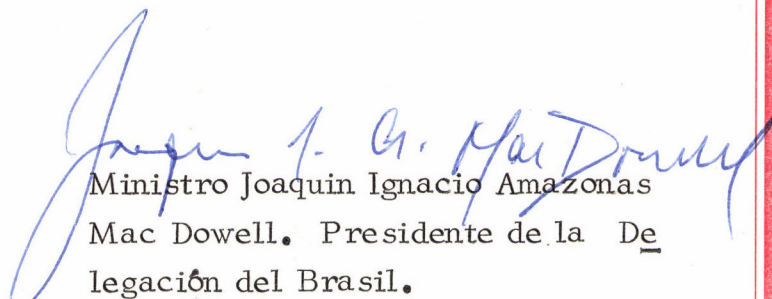 Joaquin I. A. MacDowell
Ministro Joaquin Ignacio Amazonas
Mac Dowell. Presidente de la De
legación del Brasil.